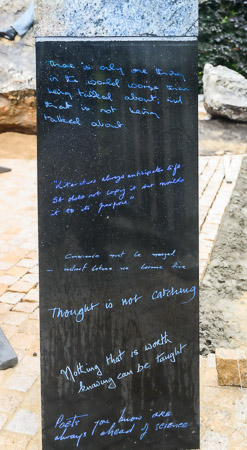 there is only one thing
in the world worse than
being talked about, and
that is not being
talked about
"Literature always anticipates life
It does not copy it but moulds
it to its purpose"
must be merged
instinct before we become fine
Thought is not catching
Nothing that is worth
knowing can be taught
Poets, you know are
always ahead of science